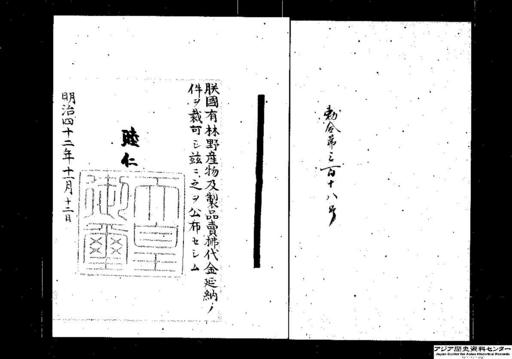 勅令第三百十八号
朕國有林野産物及製品賣拂代金延納ノ
件ヲ裁可シ茲ニ之ヲ公布セシム
睦仁
天皇御璽
明治四十二年十一月十二日
アジア歴史資料センター
Japan Center for Asian Historical Records